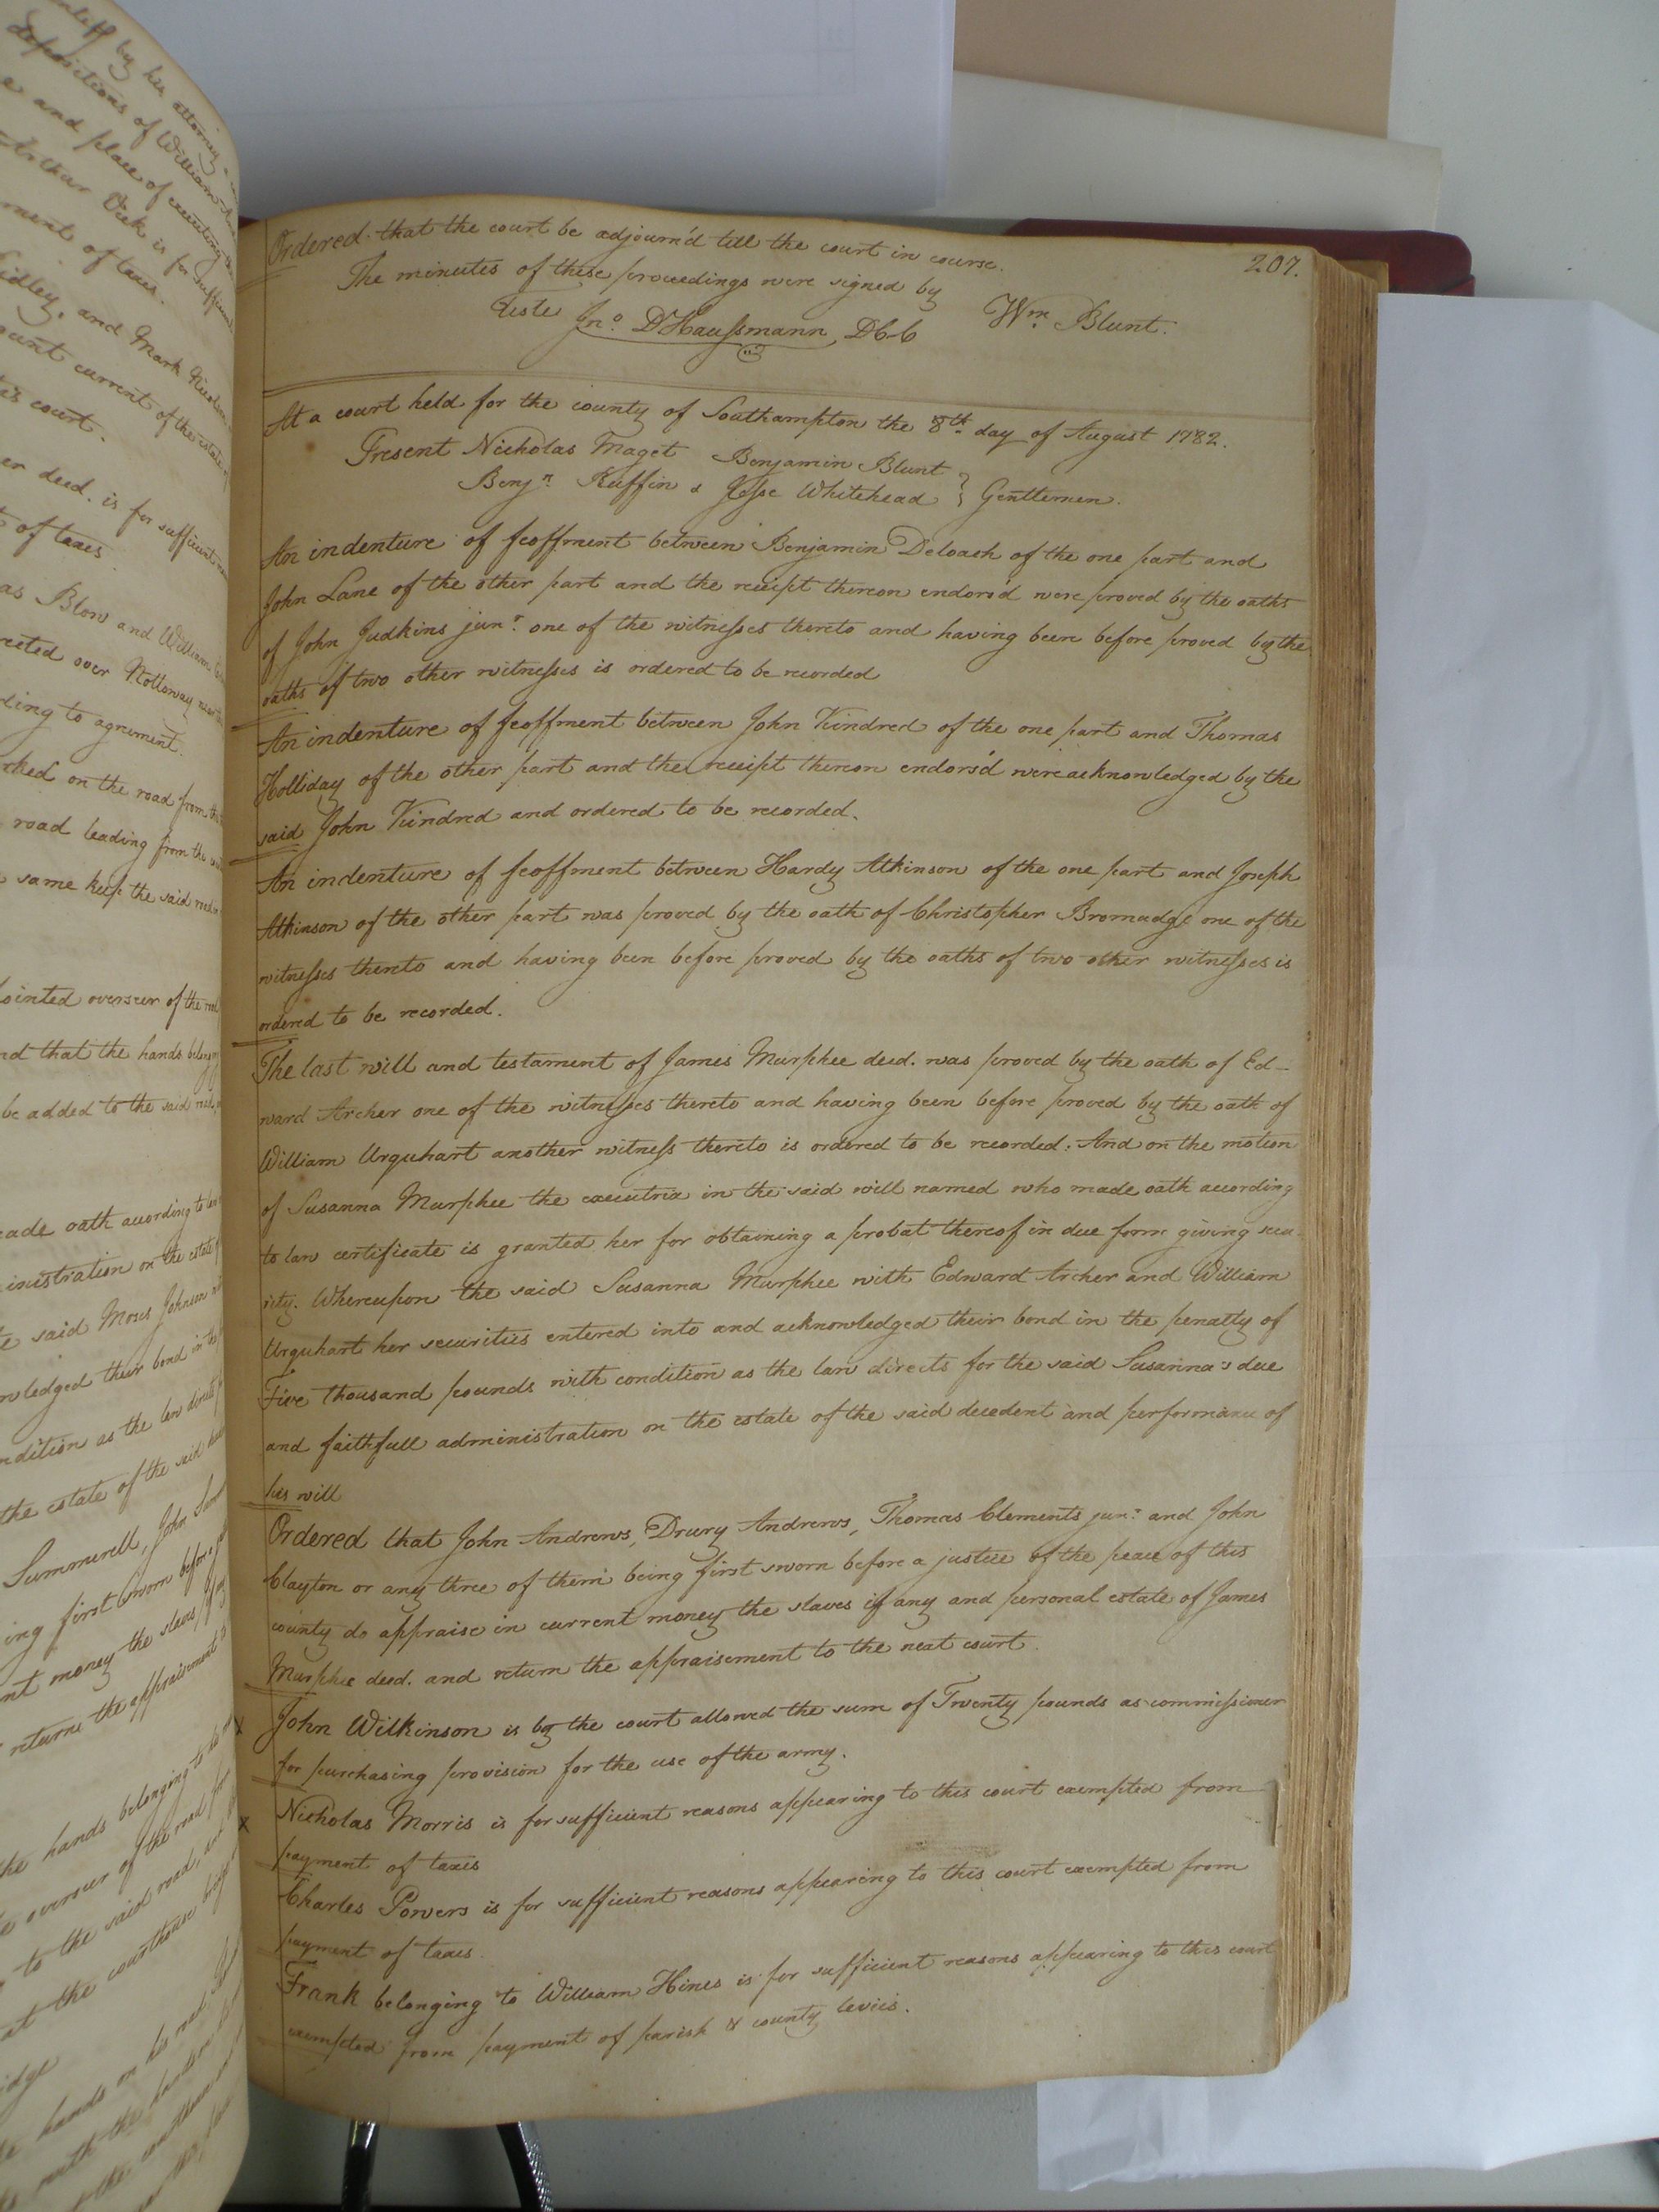 by his attorney
depositions of William
and place of executing
Arthur is for sufficient
ment of taxes.
and Mark
current of the estate
court.
deed. is for sufficient
of taxes
Blow and William
over Nottoway
to agreement.
on the road from the
road leading from the
same keep the said road
overseer of the road
that the hands
be added to the said road
oath according to
on the estate
said Moses Johnson
their bond in the
as the law directs
the estate of the said
Summerell, John
first sworn before
money the slaves if
return the appraisement
the hands belonging to
overseer of the road
to the said road,
at the courthouse
hands on his
207.
Ordered that the court be adjourn'd till the court in course.
The minutes of these proceedings were signed by
Teste Jno. DHaussmann, DCC Wm. Blunt.
At a court held for the county of Southampton the 8th day of August 1782.
Present Nicholas Maget Benjamin Blunt
Benjn. Ruffin & Jesse Whitehead } Gentlemen.
An indenture of feoffment between Benjamin Deloach of the one part and
John Lane of the other part and the receipt thereon endors'd were proved by the oaths
of John Judkins junr. one of the witnesses thereto and having been before proved by the
oaths of two other witnesses is ordered to be recorded
An indenture of feoffment between John Kindred of the one part and Thomas
Holliday of the other part and the receipt thereon endors'd were acknowledged by the
said John Kindred and ordered to be recorded.
An indenture of feoffment between Hardy Atkinson of the one part and Joseph
Atkinson of the other part was proved by the oath of Christopher Bromadge one of the
witnesses thereto and having been before proved by the oaths of two other witnesses is
ordered to be recorded.
The last will and testament of James Murphee deed. was proved by the oath of Ed-
ward Archer one of the witnesses thereto and having been before proved by the oath of
William Urquhart another witness thereto is ordered to be recorded. And on the motion
of Susanna Murphee the executrix in the said will named who made oath according
to law certificate is granted her for obtaining a probat thereof in due form giving secu-
rity. Whereupon the said Susanna Murphee with Edward Archer and William
Urquhart her securities entered into and acknowledged their bond in the penalty of
Five thousand pounds with condition as the law directs for the said Susanna's due
and faithfull administration on the estate of the said decedent and performance of
his will
Ordered that John Andrews, Drury Andrews, Thomas Clements junr. and John
Clayton or any three of them being first sworn before a justice of the peace of this
county do appraise in current money the slaves if any and personal estate of James
Murphee deed. and return the appraisement to the next court.
x John Wilkinson is by the court allowed the sum of Twenty pounds as commissioner
for purchasing provision for the use of the army.
x Nicholas Morris is for sufficient reasons appearing to this court exempted from
payment of taxes
Charles Powers is for sufficient reasons appearing to this court exempted from
payment of taxes.
Frank belonging to William Hines is for sufficient reasons appearing to this court
exempted from payment of parish & county levies.